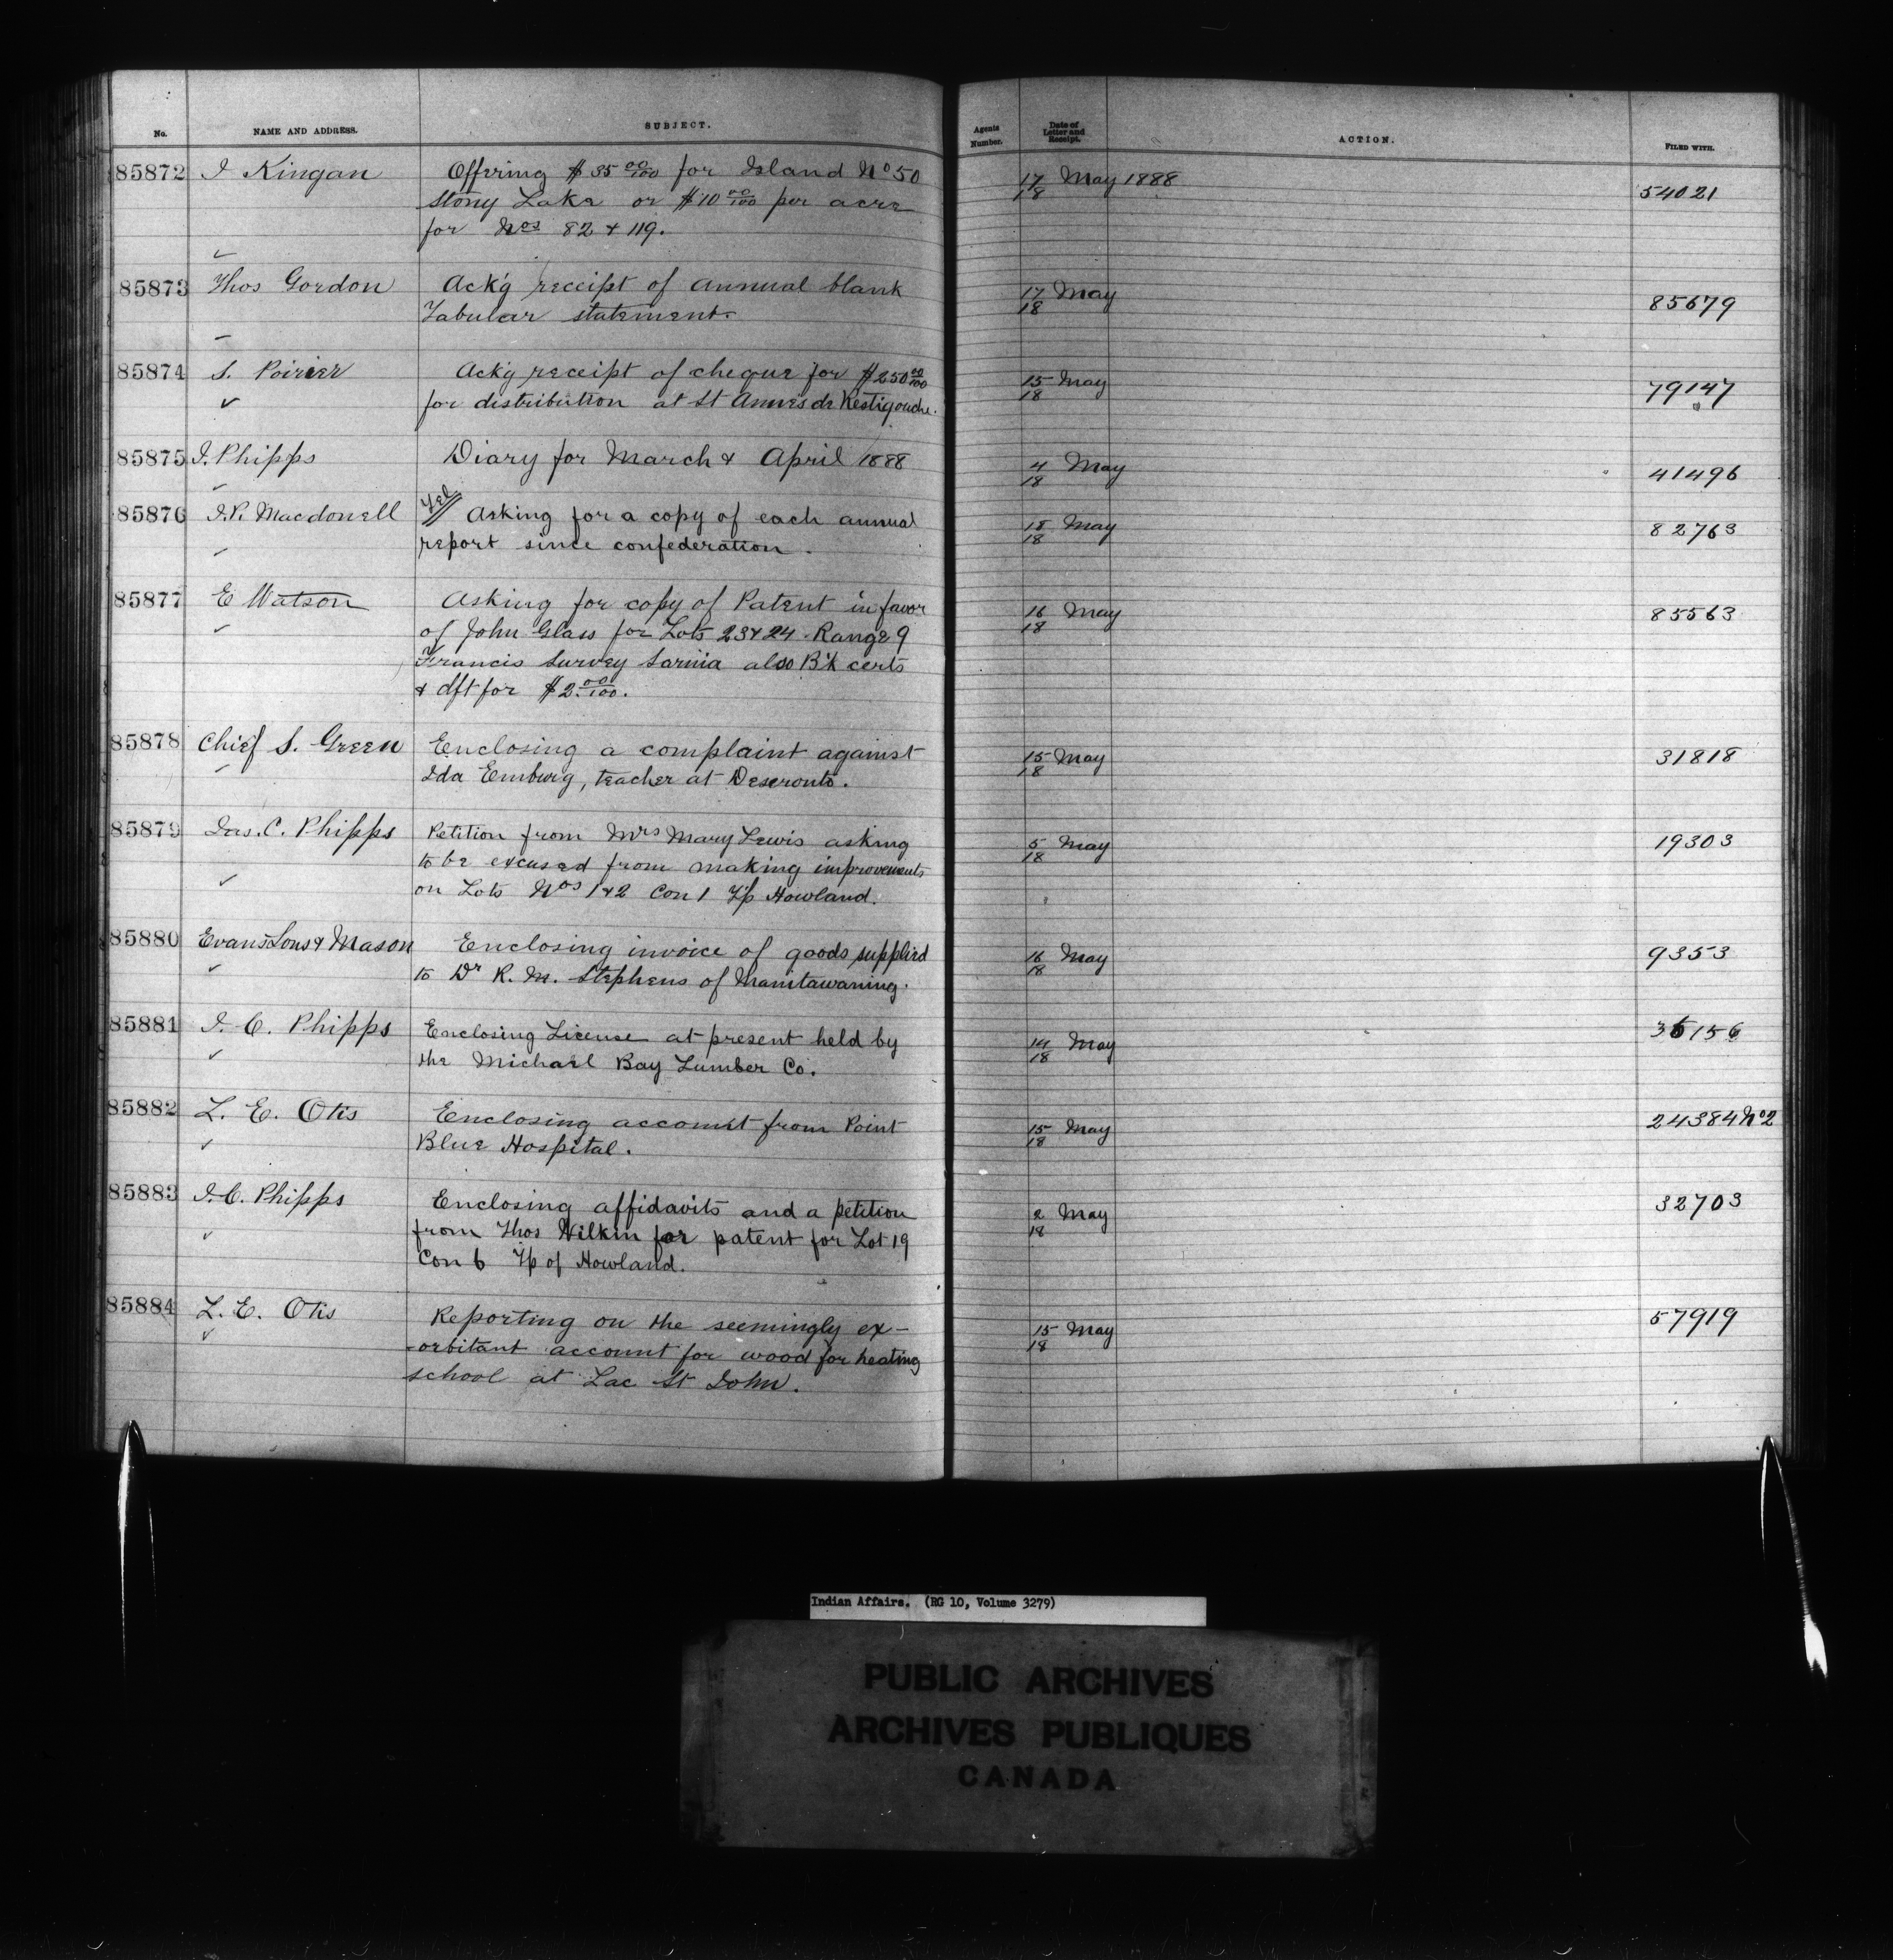 No. NAME AND ADDRESS. SUBJECT. Agents Number. Date of Letter and Receipt. ACTION. FILED WITH.
85872 I Kingan Offering $35 00/100 for Island No 50 17/18 May 1888 54021
Stony Lake or $10 00/100 per acre
for Nos 82 & 119.
85873 Thos Gordon Ack'g receipt of annual blank 17/18 May 85679
Tabular statement.
85874 S. Poirier Ack'g receipt of cheque for $250 00/100 15/18 May 79147
for distribution at St Annes de Restigouche.
85875 J. Phipps Diary for March & April 1888 4/18 May 41496
85876 J.P. Macdonell Tel Asking for a copy of each annual 18/18 May 82763
report since confederation.
85877 E Watson Asking for copy of Patent in favor 16/18 May 85563
of John Glass for Lots 23 & 24 Range 9
Francis Survey Sarnia also B'k certs
& dft for $2. 00/100.
85878 Chief S. Green Enclosing a complaint against 15/18 May 31818
Ida Emburg, teacher at Deseronto.
85879 Jas. C. Phipps Petition from Mrs Mary Lewis asking 5/18 May 19303
to be excused from making improvements
on Lots Nos 1 & 2 Con 1 T/p Howland.
85880 Evans Sons & Mason Enclosing invoice of goods supplied 16/18 May 9353
to Dr R. M. Stephens of Manitawaning.
85881 J. C. Phipps Enclosing License at present held by 14/18 May 36156
the Michael Bay Lumber Co.
85882 L. E. Otis Enclosing account from Point 15/18 May 24384 No 2
Blue Hospital.
85883 J. C. Phipps Enclosing affidavits and a petition 2/18 May 32703
from Thos Wilkin for patent for Lot 19
Con 6 T/p of Howland.
85884 L. E. Otis Reporting on the seemingly ex- 15/18 May 57919
-orbitant account for wood for heating
school at Lac St John.
Indian Affairs. (RG 10, Volume 3279)
PUBLIC ARCHIVES
ARCHIVES PUBLIQUES
CANADA